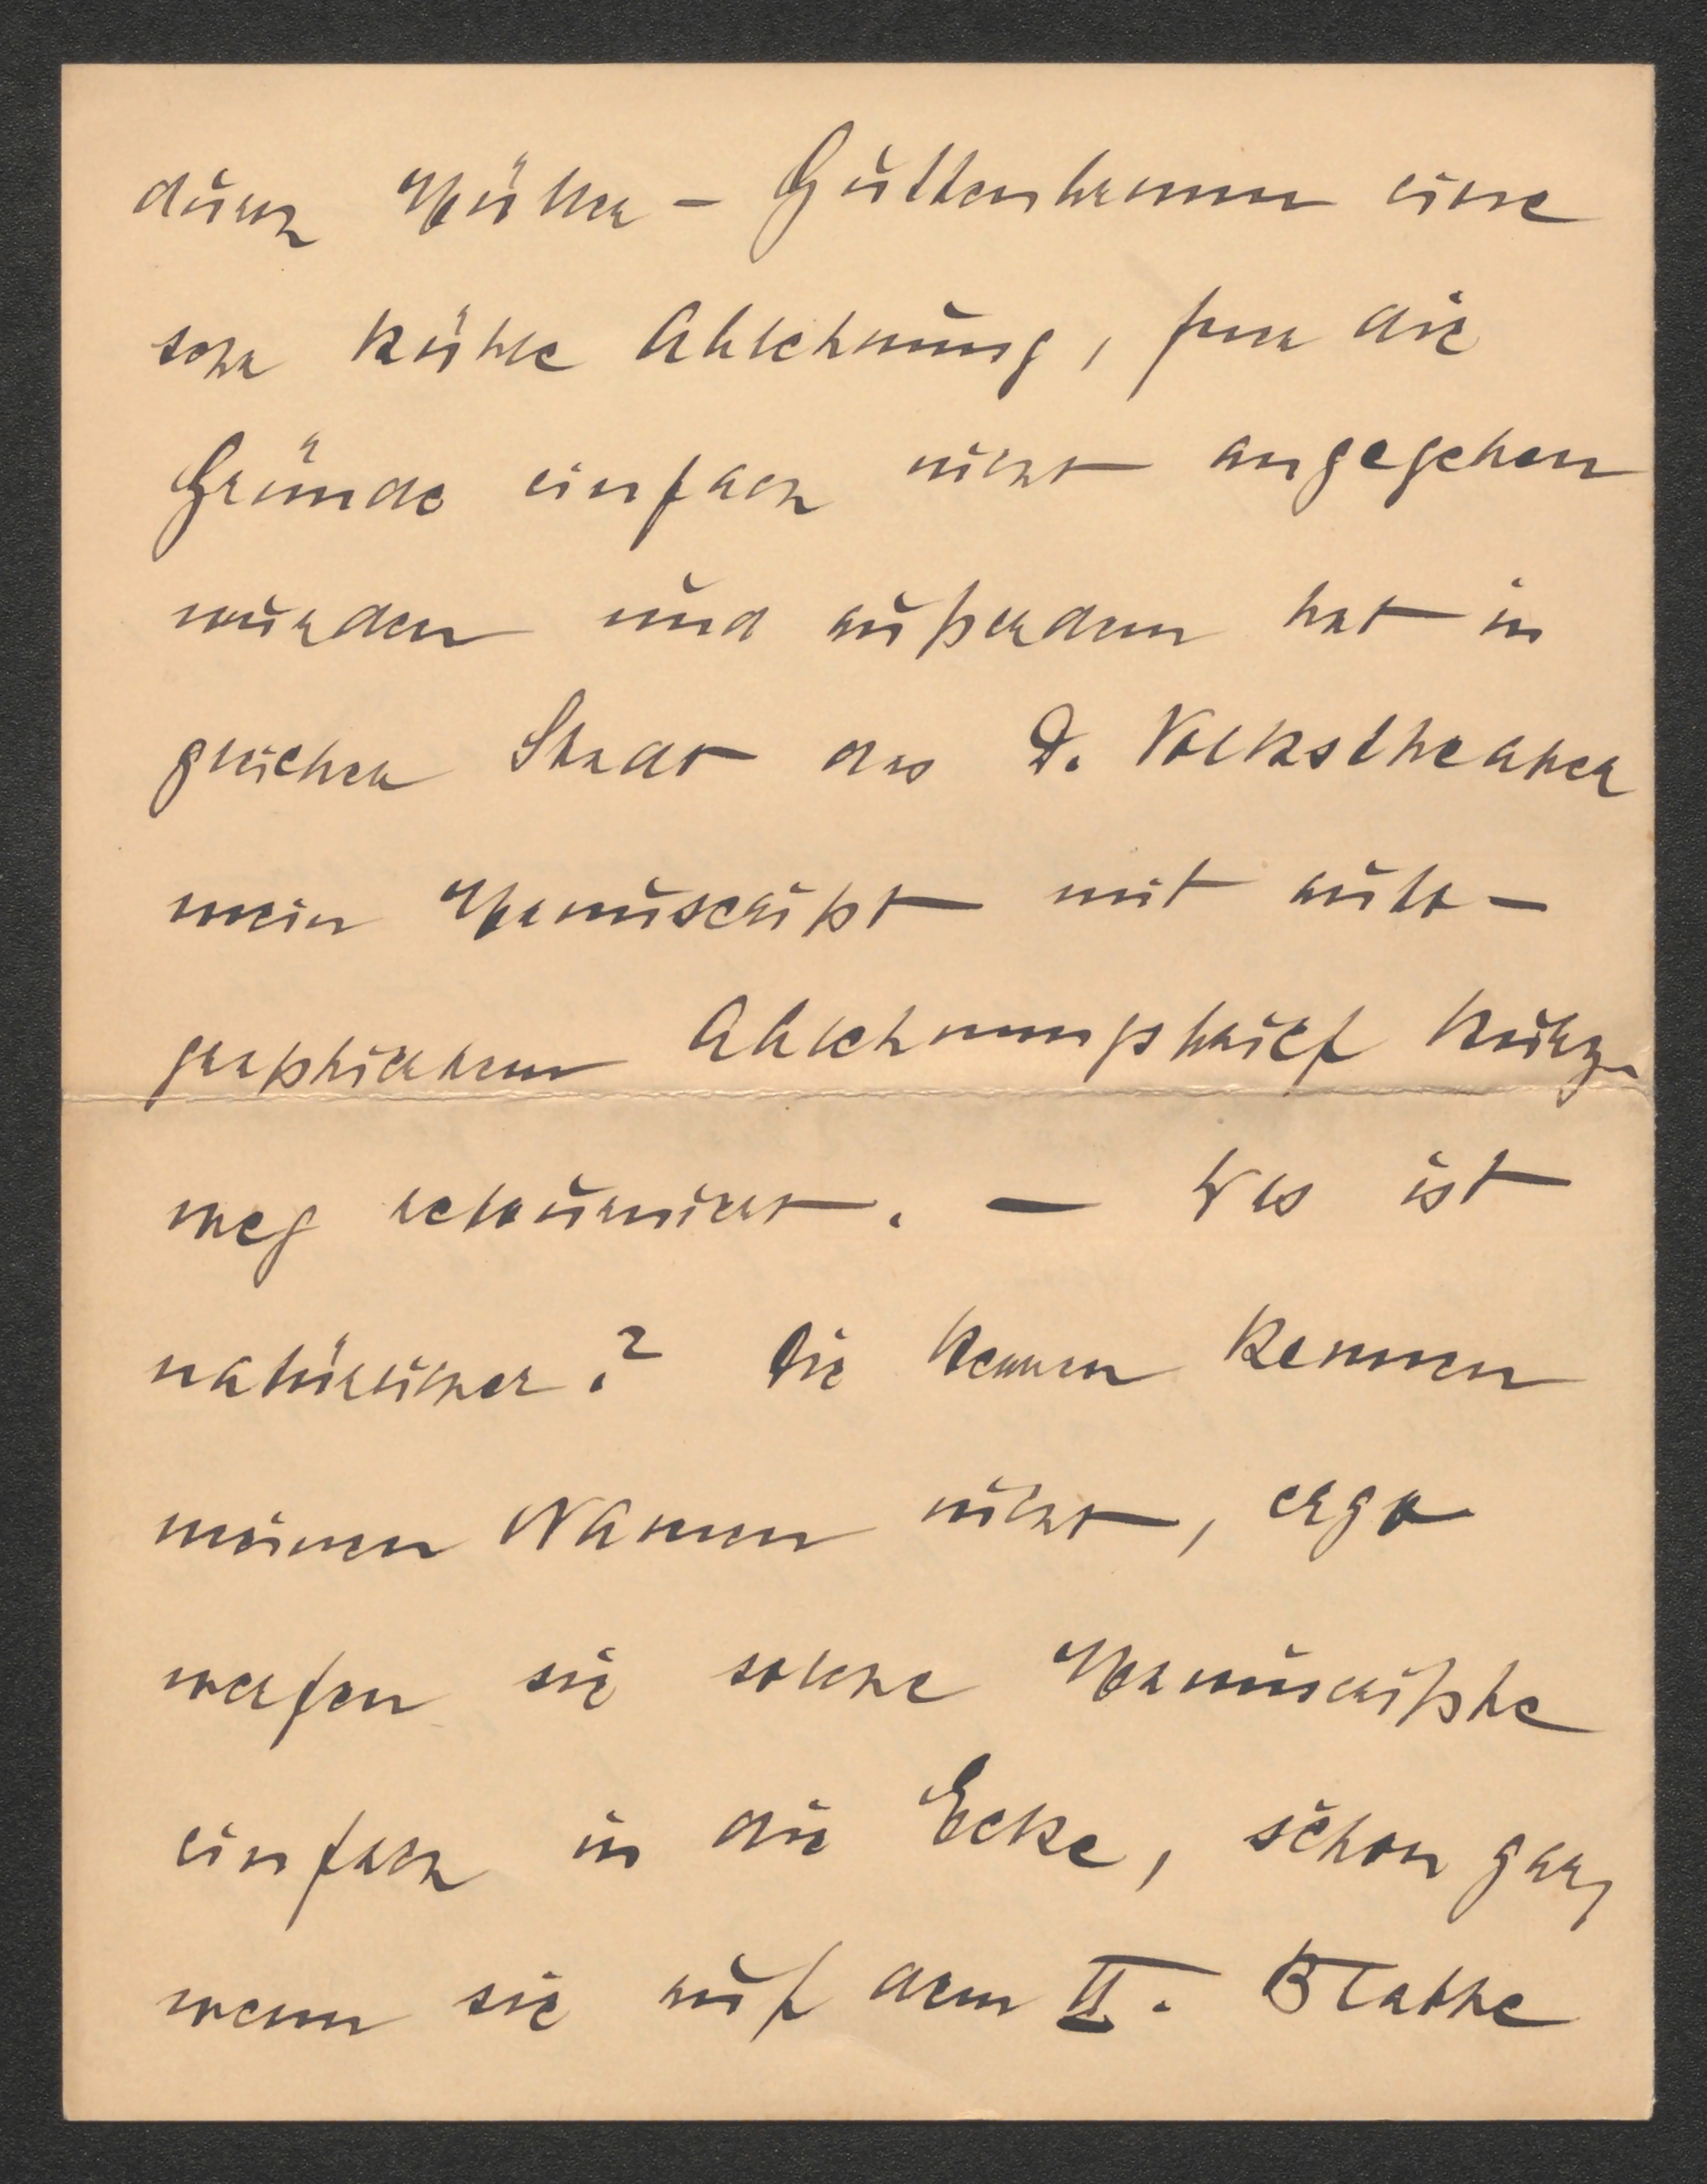 durch Müller-Guttenbrunn eine
sehr kühle Ablehnung, für die
Gründe einfach nicht angegeben
wurden und außerdem hat in
gleicher Stadt das D. Volkstheater
mein Manuscript mit auto-
graphiertem Ablehnungsbrief kurz-
weg retourniert. — Was ist
natürlicher? Die Herren kennen
meinen Namen nicht, ergo
werfen sie solche Manuscripte
einfach in die Ecke, schon gar,
wenn sie auf dem II. Blatte